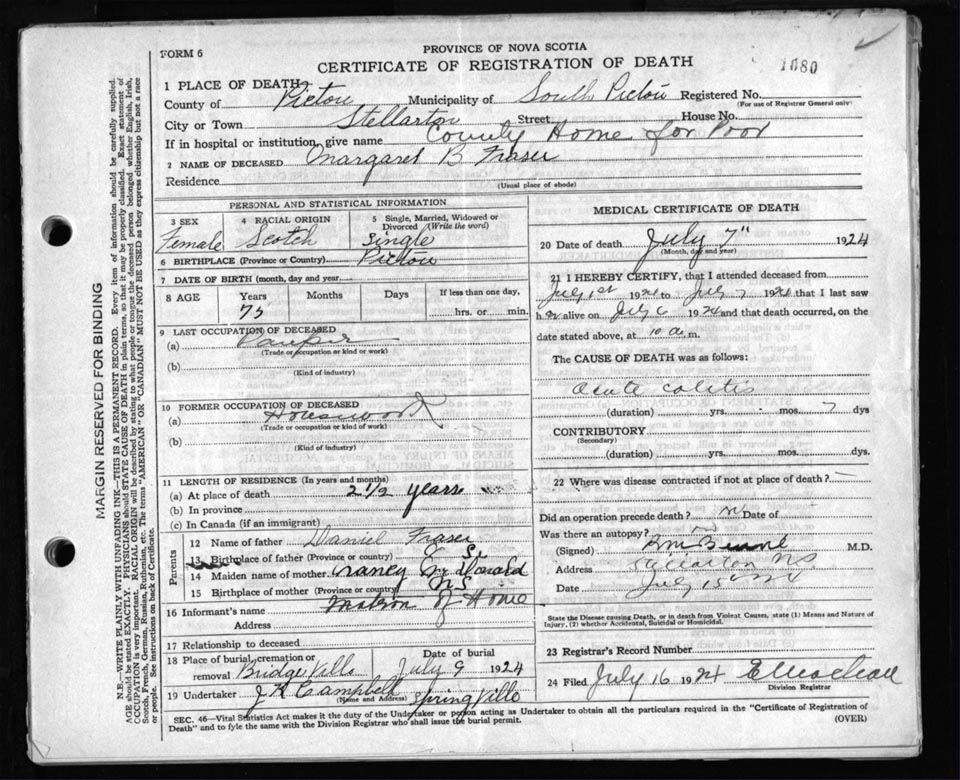 FORM 6
PROVINCE OF NOVA SCOTIA
CERTIFICATE OF REGISTRATION OF DEATH
1080
1 PLACE OF DEATH
County of Pictou Municipality of South Pictou Registered No.
(For use of Registrar General only)
City or Town Stellarton Street House No.
If in hospital or institution, give name County Home for Poor
2 NAME OF DECEASED Margaret B Fraser
Residence
(Usual place of abode)
PERSONAL AND STATISTICAL INFORMATION
3 SEX Female
4 RACIAL ORIGIN Scotch
5 Single, Married, Widowed or Divorced (Write the word) Single
6 BIRTHPLACE (Province or Country) Pictou
7 DATE OF BIRTH (month, day and year)
8 AGE Years 75 Months Days If less than one day, hrs. or min.
9 LAST OCCUPATION OF DECEASED
(a) Pauper
(Trade or occupation or kind or work)
(b)
(Kind of industry)
10 FORMER OCCUPATION OF DECEASED
(a) Housework
(Trade or occupation or kind of work)
(b)
(Kind of industry)
11 LENGTH OF RESIDENCE (In years and months)
(a) At place of death 2 1/2 years
(b) In province
(c) In Canada (if an immigrant)
Parents
12 Name of father Daniel Fraser
13 Birthplace of father (Province or country)
14 Maiden name of mother Nancy McDonald
15 Birthplace of mother (Province or country) N S
16 Informant's name Matron of Home
Address
17 Relationship to deceased
18 Place of burial, cremation or removal Bridgeville Date of burial July 9 1924
19 Undertaker J R Campbell Springville
(Name and Address)
MEDICAL CERTIFICATE OF DEATH
20 Date of death July 7" 1924
(Month, day and year)
21 I HEREBY CERTIFY, that I attended deceased from
July 1st 1924 to July 7 1924 that I last saw
her alive on July 6 1924 and that death occurred, on the
date stated above, at 10 a.m.
The CAUSE OF DEATH was as follows:
Acute colitis
(duration) yrs. mos. 7 dys
CONTRIBUTORY
(Secondary)
(duration) yrs. mos. dys.
22 Where was disease contracted if not at place of death?
Did an operation precede death? no Date of
Was there an autopsy? no
(Signed) M.D.
Address Stellarton NS
Date July 15 1924
State the Disease causing Death, or in death from Violent Causes, state (1) Means and Nature of
Injury, (2) whether Accidental, Suicidal or Homicidal.
23 Registrar's Record Number
24 Filed July 16 1924
Division Registrar
SEC. 46—Vital Statistics Act makes it the duty of the Undertaker or person acting as Undertaker to obtain all the particulars required in the "Certificate of Registration of
Death" and to fyle the same with the Division Registrar who shall issue the burial permit.
(OVER)
MARGIN RESERVED FOR BINDING
N.B.—WRITE PLAINLY WITH UNFADING INK—THIS IS A PERMANENT RECORD. Every item of information should be carefully supplied.
AGE should be stated EXACTLY. PHYSICIANS should STATE CAUSE OF DEATH in plain terms, so that it may be properly classified. Exact statement of
OCCUPATION is very important. RACIAL ORIGIN will be described by stating to what people or tongue the deceased person belonged whether English, Irish,
Scotch, French, German, Russian, Ruthenian, etc. The terms "AMERICAN" OR "CANADIAN" MUST NOT BE USED as they express citizenship but not a race
or people. See instructions on back of Certificate.